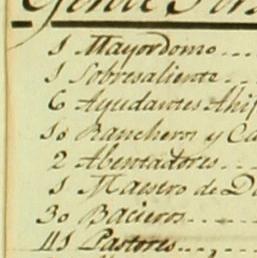 1 Mayordomo...
1 Sobresaliente..
6 Ayudantes
10 Rancheros y
2 Abentadores...
1 Maestro de
30 Bacieros....
41 Pastores....